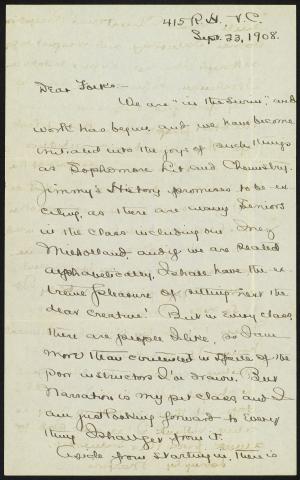 415 R.H., V.C.
Sept. 23, 1908.
Dear Folks—
We are "in the swim," and
work has begun, and we have become
initiated into the joys of such things
as Sophomore Lit and Chemistry.
Jimmy's History promises to be ex-
citing, as there are many Seniors
in the class including our Inez
Milholland, and if we are seated
alphabetically, I shall have the ex-
treme pleasure of sitting next the
dear creature! But in every class,
there are people I like, so I am
more than contented in spite of the
poor instructors I've drawn. But
Narration is my pet class, and I
am just looking forward to every
thing I shall get from it.
Aside from starting in, there is